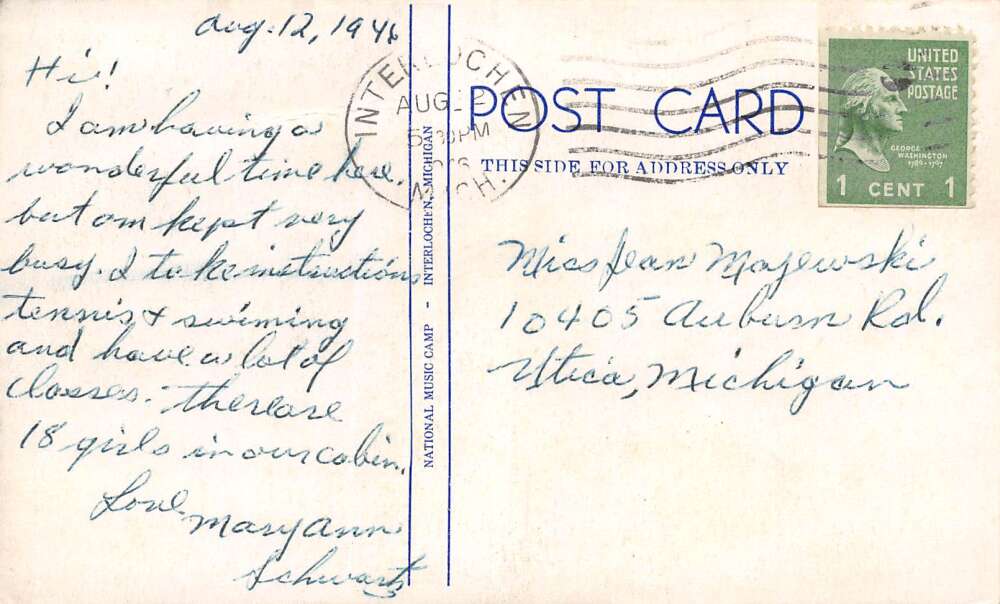 Aug. 12, 1946
Hi!
I am having a
wonderful time here.
but am kept very
busy. I take instructions
tennis & swiming
and have a lot of
classes. There are
18 girls in our cabin.
Love
Mary Ann
Schwartz
NATIONAL MUSIC CAMP - INTERLOCHEN, MICHIGAN
INTERLOCHEN
AUG 12
5 30 PM
MICH.
POST CARD
THIS SIDE FOR ADDRESS ONLY
UNITED
STATES
POSTAGE
GEORGE
WASHINGTON
1789-1797
1 CENT 1
Miss Jean Majewski
10405 Auburn Rd.
Utica, Michigan